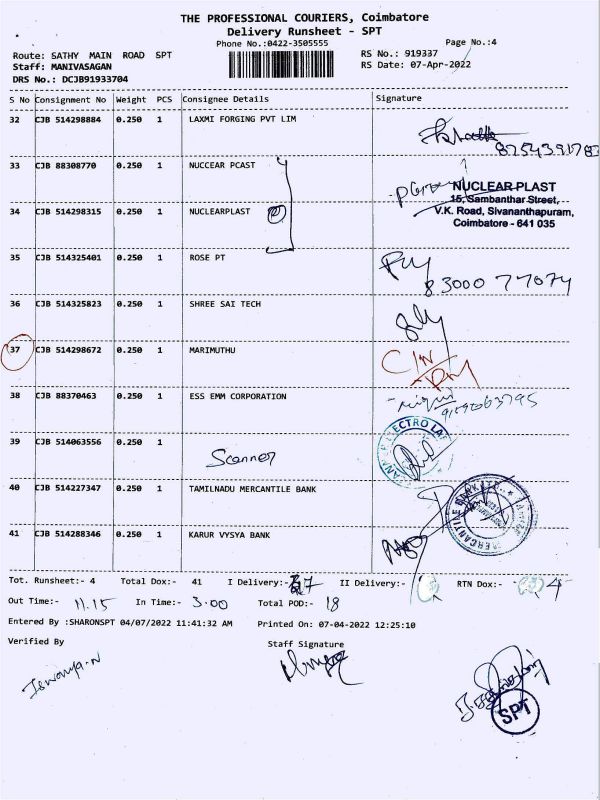 THE PROFESSIONAL COURIERS, Coimbatore
Delivery Runsheet - SPT
Phone No.:0422-3505555
Page No.:4
Route: SATHY MAIN ROAD SPT
RS No.: 919337
Staff: MANIVASAGAN
RS Date: 07-Apr-2022
DRS No.: DCJB91933704
S No Consignment No Weight PCS Consignee Details Signature
32 CJB 514298884 0.250 1 LAXMI FORGING PVT LIM
33 CJB 88308770 0.250 1 NUCCEAR PCAST
NUCLEAR PLAST
15, Sambanthar Street,
34 CJB 514298315 0.250 1 NUCLEARPLAST
V.K. Road, Sivananthapuram,
Coimbatore - 641 035
35 CJB 514325401 0.250 1 ROSE PT
83000 77074
36 CJB 514325823 0.250 1 SHREE SAI TECH
37 CJB 514298672 0.250 1 MARIMUTHU
38 CJB 88370463 0.250 1 ESS EMM CORPORATION
39 CJB 514063556 0.250 1
Scanner
40 CJB 514227347 0.250 1 TAMILNADU MERCANTILE BANK
41 CJB 514288346 0.250 1 KARUR VYSYA BANK
Tot. Runsheet:- 4 Total Dox:- 41 I Delivery:- 37 II Delivery:- RTN Dox:- 4
Out Time:- 11.15 In Time:- 3.00 Total POD:- 18
Entered By :SHARONSPT 04/07/2022 11:41:32 AM Printed On: 07-04-2022 12:25:10
Verified By
Staff Signature
SPT